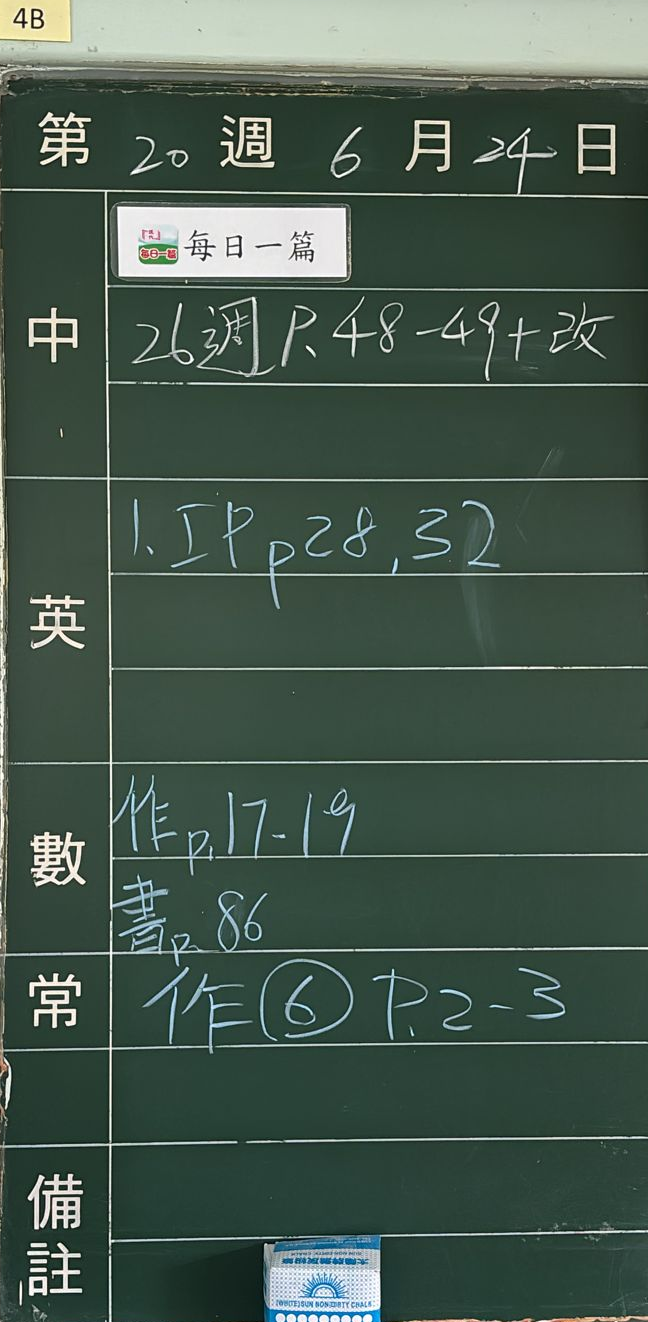 4B
第 20 週 6 月 24 日
中
每日一篇 每日一篇
26週 P.48-49+改
英
1. IP p28,32
數
作p.17-19
書p.86
常
作⑥ P.2-3
備註
(WHITE)SUN NON DIRTY CHALK